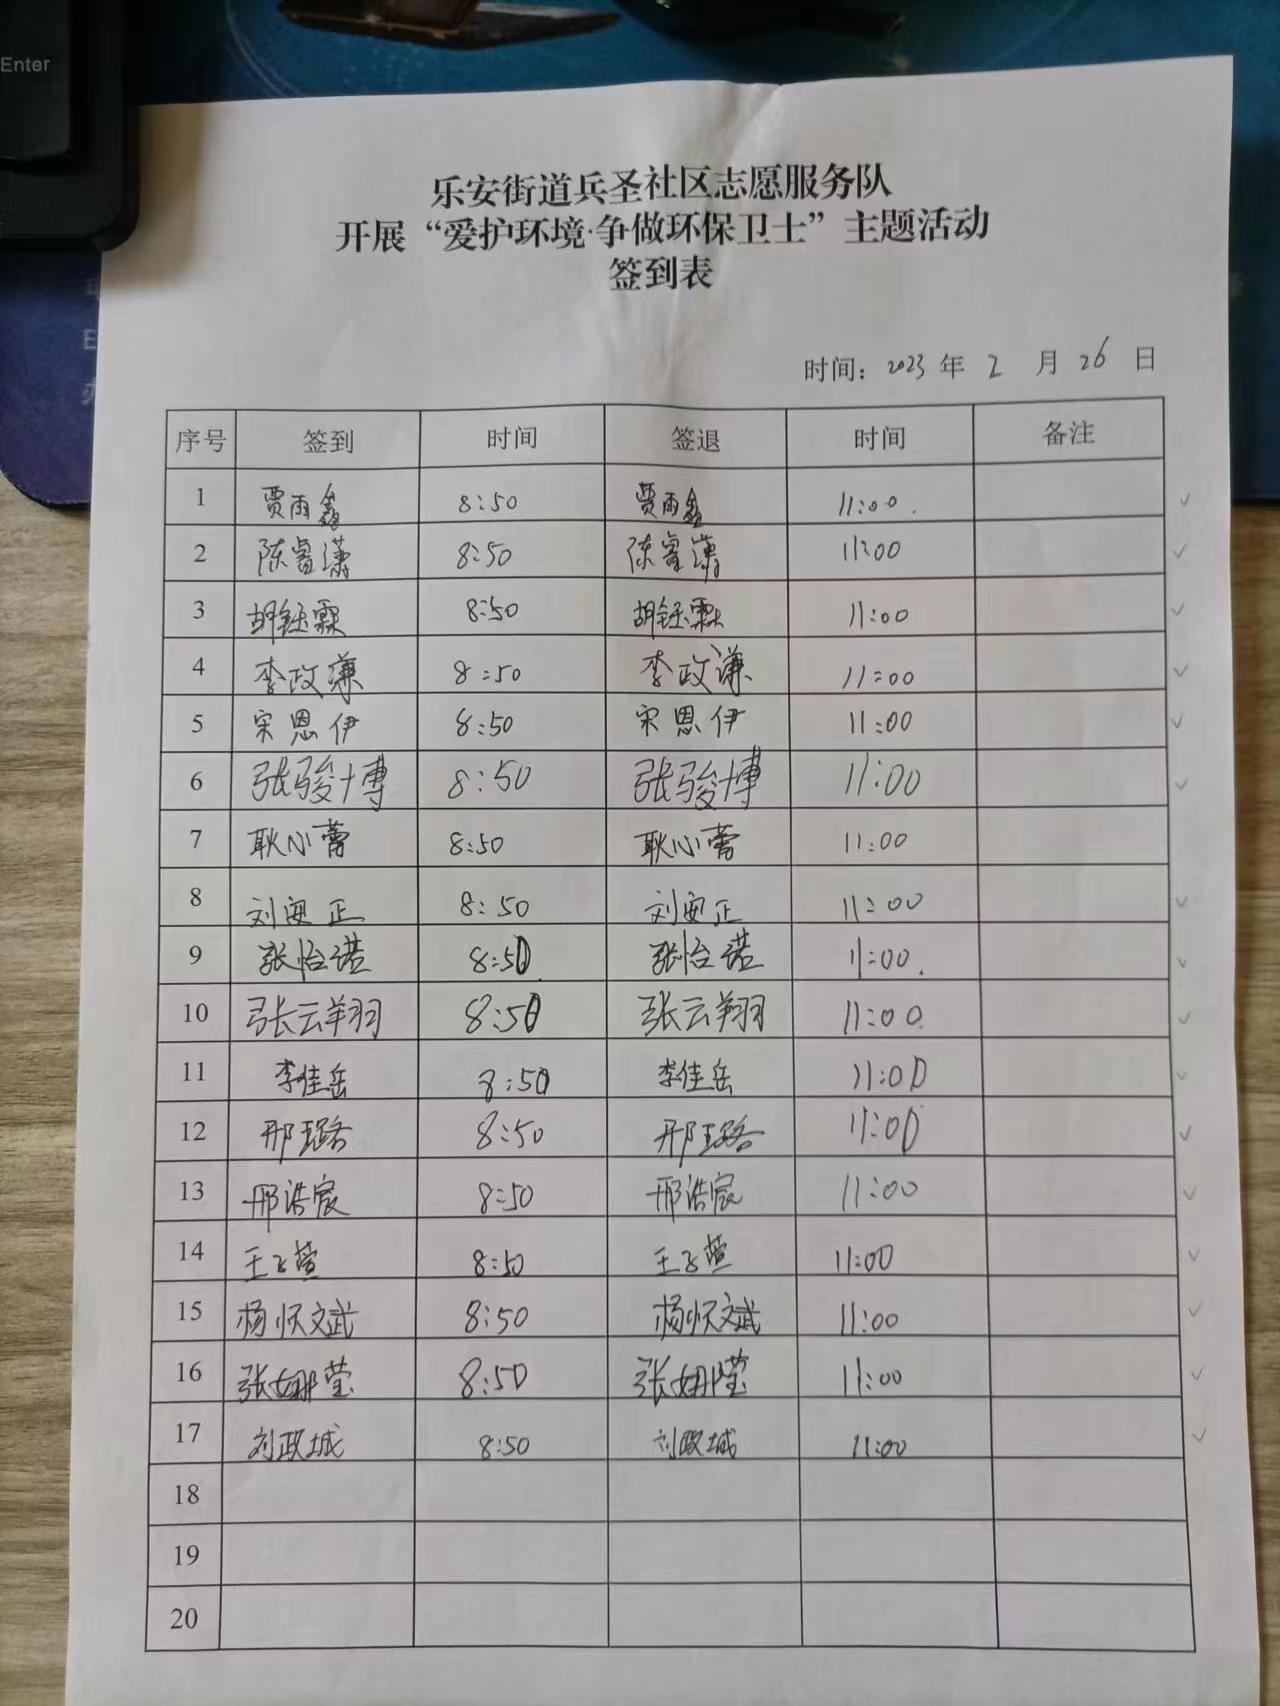 Enter
乐安街道兵圣社区志愿服务队
开展“爱护环境·争做环保卫士”主题活动
签到表
时间：2023 年 2 月 26 日
序号 签到 时间 签退 时间 备注
1 贾雨鑫 8:50 贾雨鑫 11:00.
2 陈睿潇 8:50 陈睿潇 11:00
3 胡钰霖 8:50 胡钰霖 11:00
4 李政谦 8:50 李政谦 11:00
5 宋恩伊 8:50 宋恩伊 11:00
6 张骏博 8:50 张骏博 11:00
7 耿心蕾 8:50 耿心蕾 11:00
8 刘正 8:50 刘正 11:00
9 张怡诺 8:50 张怡诺 11:00.
10 张云翔 8:50 张云翔 11:00
11 李佳岳 8:50 李佳岳 11:00
12 邢璐 8:50 邢璐 11:00
13 邢浩宸 8:50 邢浩宸 11:00
14 王飞萱 8:50 王飞萱 11:00
15 杨怀斌 8:50 杨怀斌 11:00
16 张娜莹 8:50 张娜莹 11:00
17 刘政城 8:50 刘政城 11:00
18
19
20